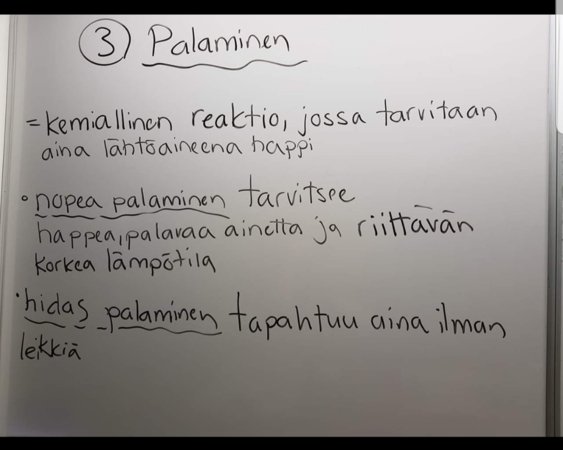 3 Palaminen
= kemiallinen reaktio, jossa tarvitaan
aina lähtöaineena happi
• nopea palaminen tarvitsee
happea, palavaa ainetta ja riittävän
korkea lämpötila
• hidas palaminen tapahtuu aina ilman
leikkiä